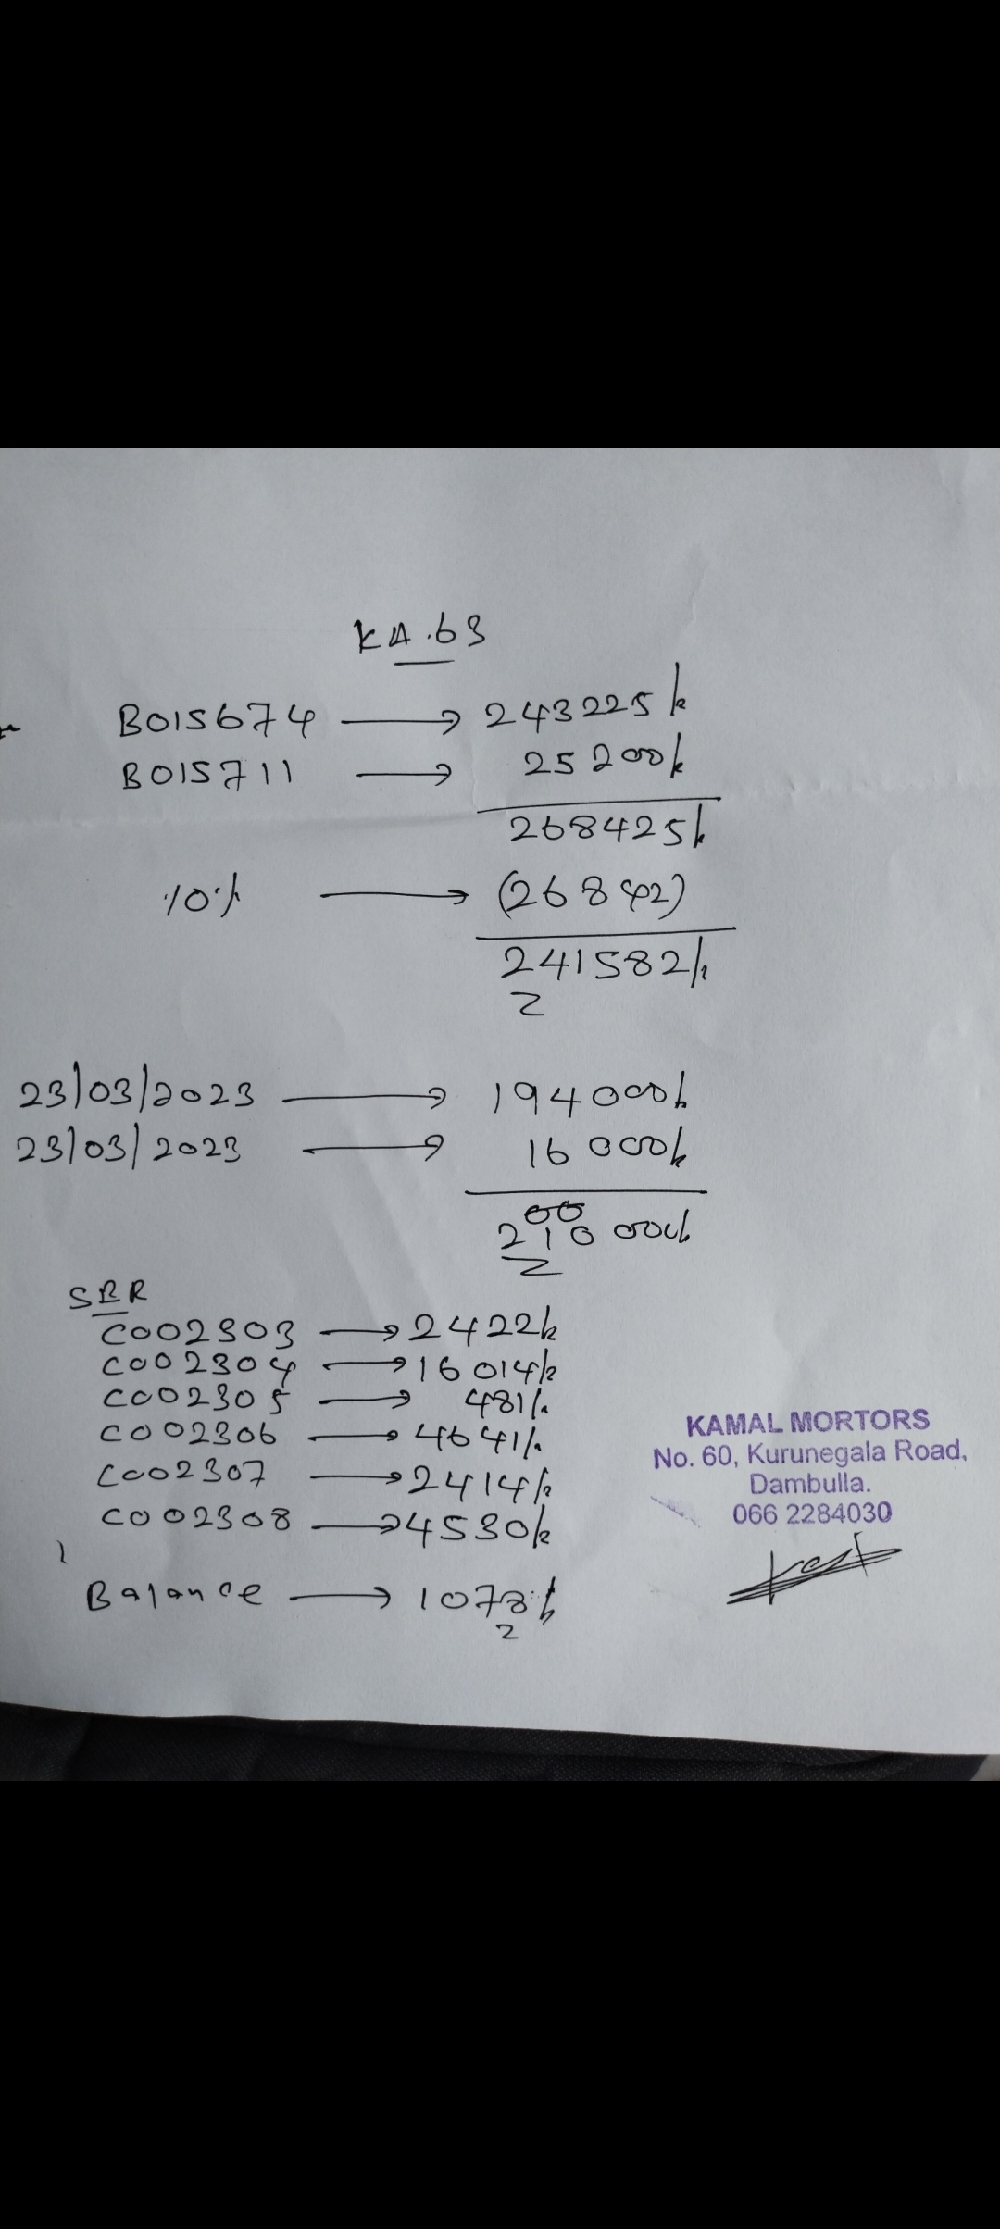 KA.63
B015674 → 243225/-
B015711 → 25200/-
268425/-
10% → (26842)
241582/-
23/03/2023 → 194000/-
23/03/2023 → 16000/-
210000/-
SRR
C002303 → 2422/-
C002304 → 16014/-
C002305 → 481/-
C002306 → 4641/-
C002307 → 2414/-
C002308 → 4530/-
Balance → 1078/-
KAMAL MORTORS
No. 60, Kurunegala Road,
Dambulla.
066 2284030